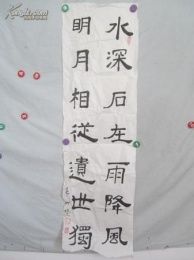 水深石在雨降風
明月相從遺世獨